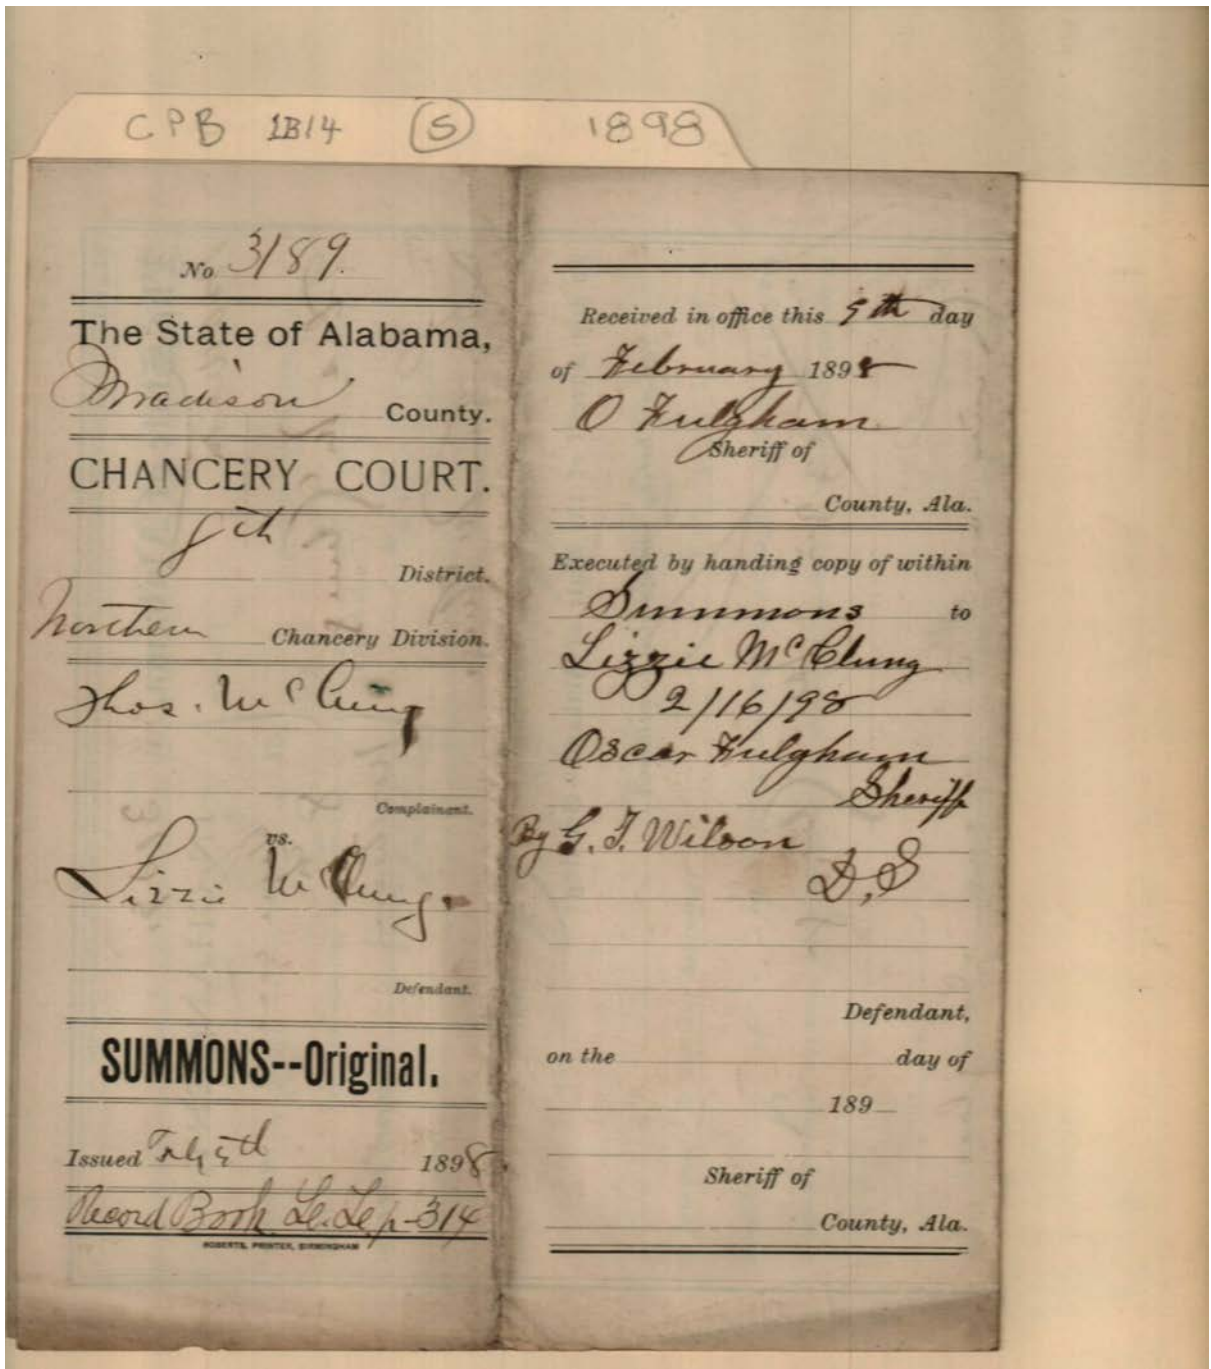 CPB 1B14 S 1898
No 3189.
The State of Alabama,
Madison County.
CHANCERY COURT.
8th
District.
Northern Chancery Division.
Thos. McClung
Complainant.
vs.
Lizzie McClung.
Defendant.
SUMMONS--Original.
Issued Feby 5th 1898
Record Book p-314
ROBERTS, PRINTER, BIRMINGHAM
Received in office this 5th day
of February 1898
O Fulgham
Sheriff of
County, Ala.
Executed by handing copy of within
Summons to
Lizzie McClung
2/16/98
Oscar Fulgham
Sheriff
By G. T. Wilson
D.S
Defendant,
on the day of
189
Sheriff of
County, Ala.